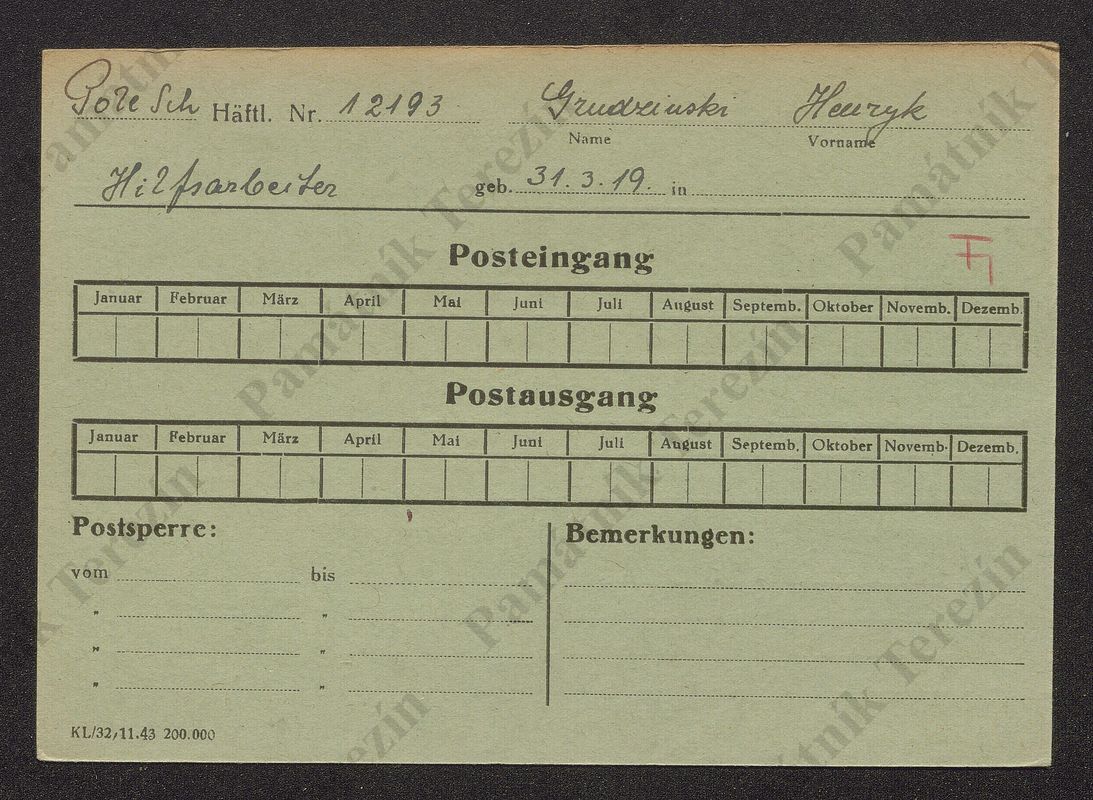 Pole Sch Häftl. Nr. 12193 Grudzinski Henryk
Name Vorname
Hilfsarbeiter geb. 31.3.19. in
Posteingang
Januar Februar März April Mai Juni Juli August Septemb. Oktober Novemb. Dezemb.
Postausgang
Januar Februar März April Mai Juni Juli August Septemb. Oktober Novemb. Dezemb.
Postsperre: Bemerkungen:
vom bis
" "
" "
" "
KL/32, 11.43 200.000
Památník Terezín